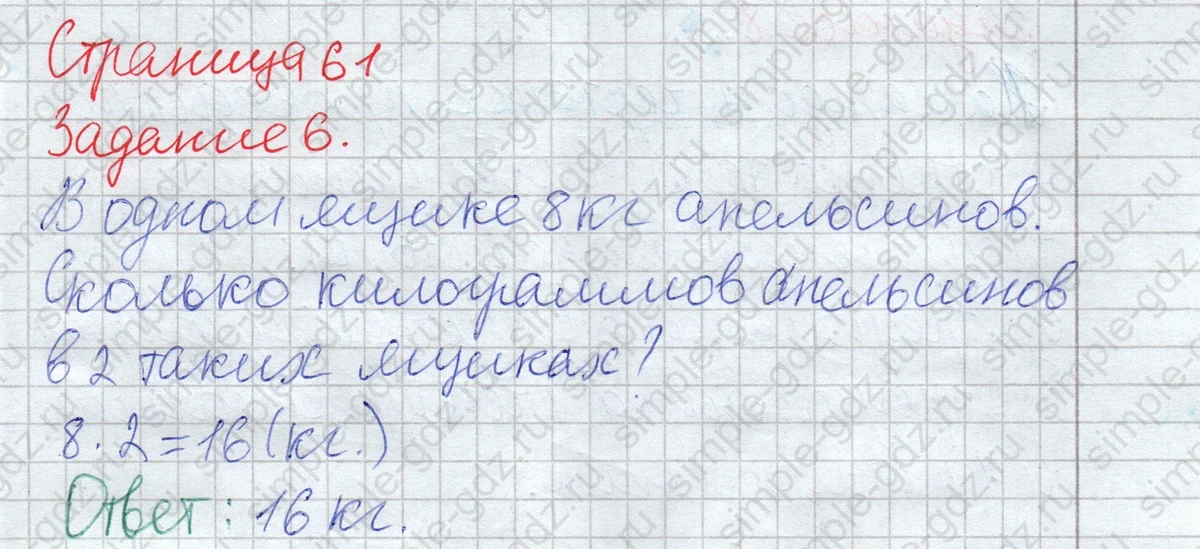 Страница 61
Задание 6.
В одном ящике 8 кг апельсинов.
Сколько килограммов апельсинов
в 2 таких ящиках?
8 · 2 = 16 (кг.)
Ответ: 16 кг.